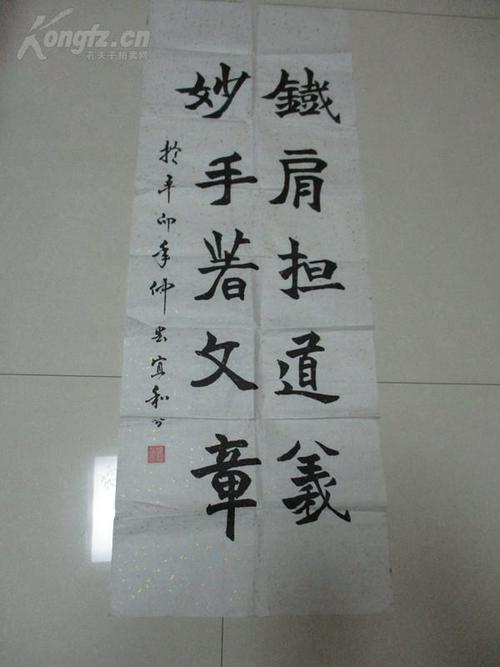 鐵肩担道義
妙手著文章
於辛卯年仲
宜和
Kongfz.cn
孔夫子拍卖网